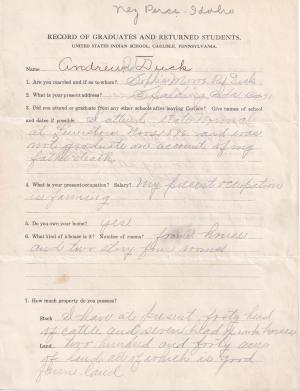 Nez Perce - Idaho
RECORD OF GRADUATES AND RETURNED STUDENTS.
UNITED STATES INDIAN SCHOOL, CARLISLE, PENNSYLVANIA.
Name Andrew Duck
1. Are you married and if so to whom?
2. What is your present address?
3. Did you attend or graduate from any other schools after leaving Carlisle? Give names of school
and dates if possible I attend State Normal
at and was
not graduate on account of my
father death
4. What is your present occupation? Salary? My present occupation
is farming
5. Do you own your home? yes
6. What kind of a house is it? Number of rooms? frame house
and two story four rooms
7. How much property do you possess?
Stock I have at present, forty head
of cattle and seven head of work horses
Land two hundred and forty acres
of land, all of which is good
farm land